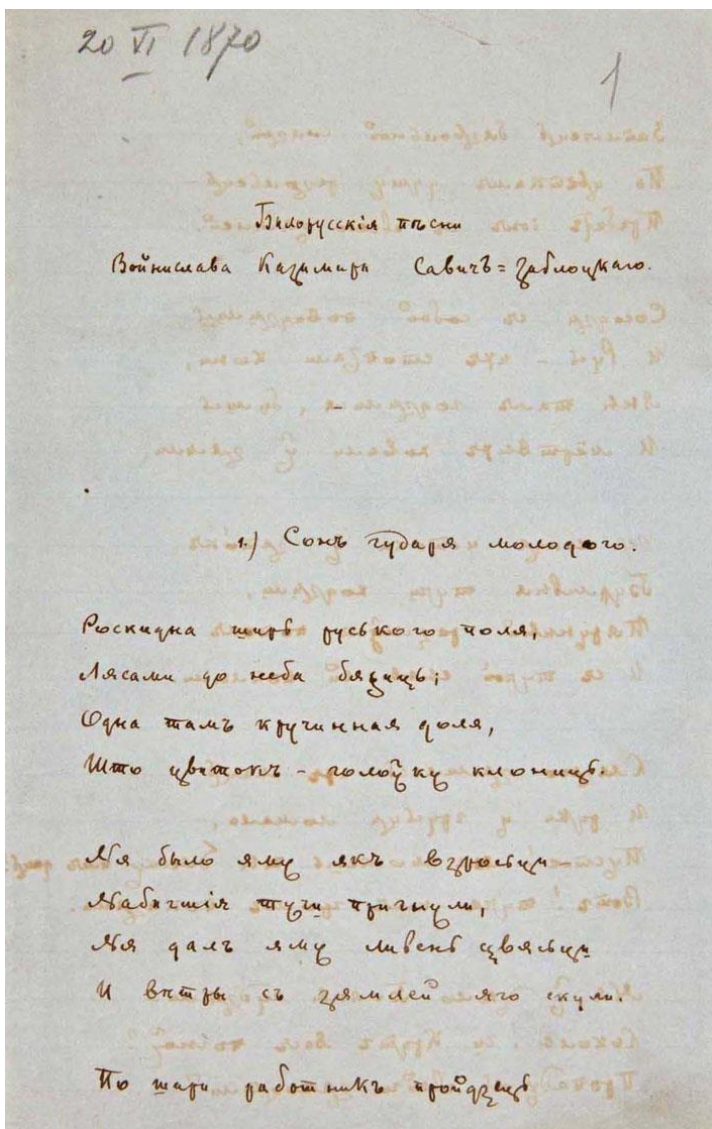 20 VI 1870
1
Бѣлорусскія пѣсни
Войнислава Казимира Савичъ=Заблоцкаго.
1.) Сонъ гударя молодого.
Роскидна ширь руського поля,
Лясами до неба бяжиць;
Одна тамъ кручинная доля,
Што цвѣтокъ - голоўку клониць.
Ня было яму якъ взросьци
Набѣгшія тучи пригнули,
Ня далъ яму ливень цвясьци
И вѣтры съ зямлей яго скули.
По шири работникъ пройдзець